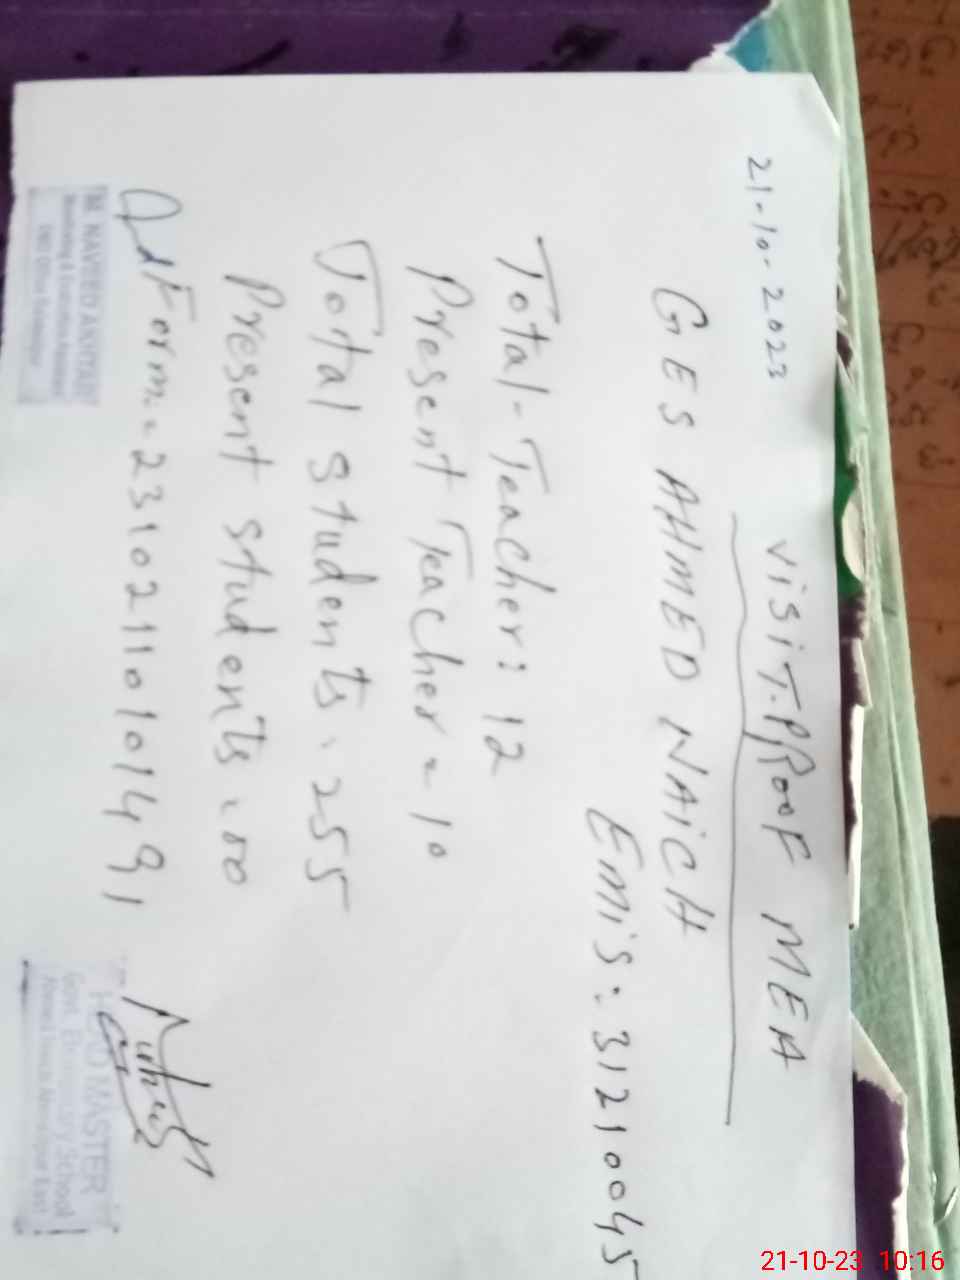 21-10-2023
VISIT.PROOF MEA
GES AHMED NAICH
Emis: 31210045
Total-Teacher: 12
Present Teacher = 10
Total students. 255
Present students. 100
Form. 231021101014491
M. NAVEED AKHTAR
Monitoring & Evaluation Assistant
HEAD MASTER
Govt. Elementary School
21-10-23 10:16